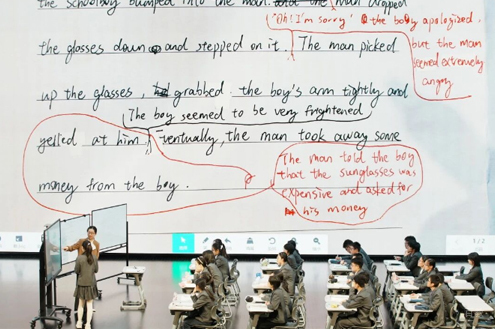 the schoolboy bumped into the man and the man dropped
"Oh! I'm sorry" the boy apologized.
but the man
seemed extremely
angry
the glasses down and stepped on it. The man picked
up the glasses, grabbed the boy's arm tightly and
The boy seemed to be very frightened
yelled at him. Eventually, the man took away some
money from the boy.
The man told the boy
that the sunglasses was
expensive and asked for
his money
1/2